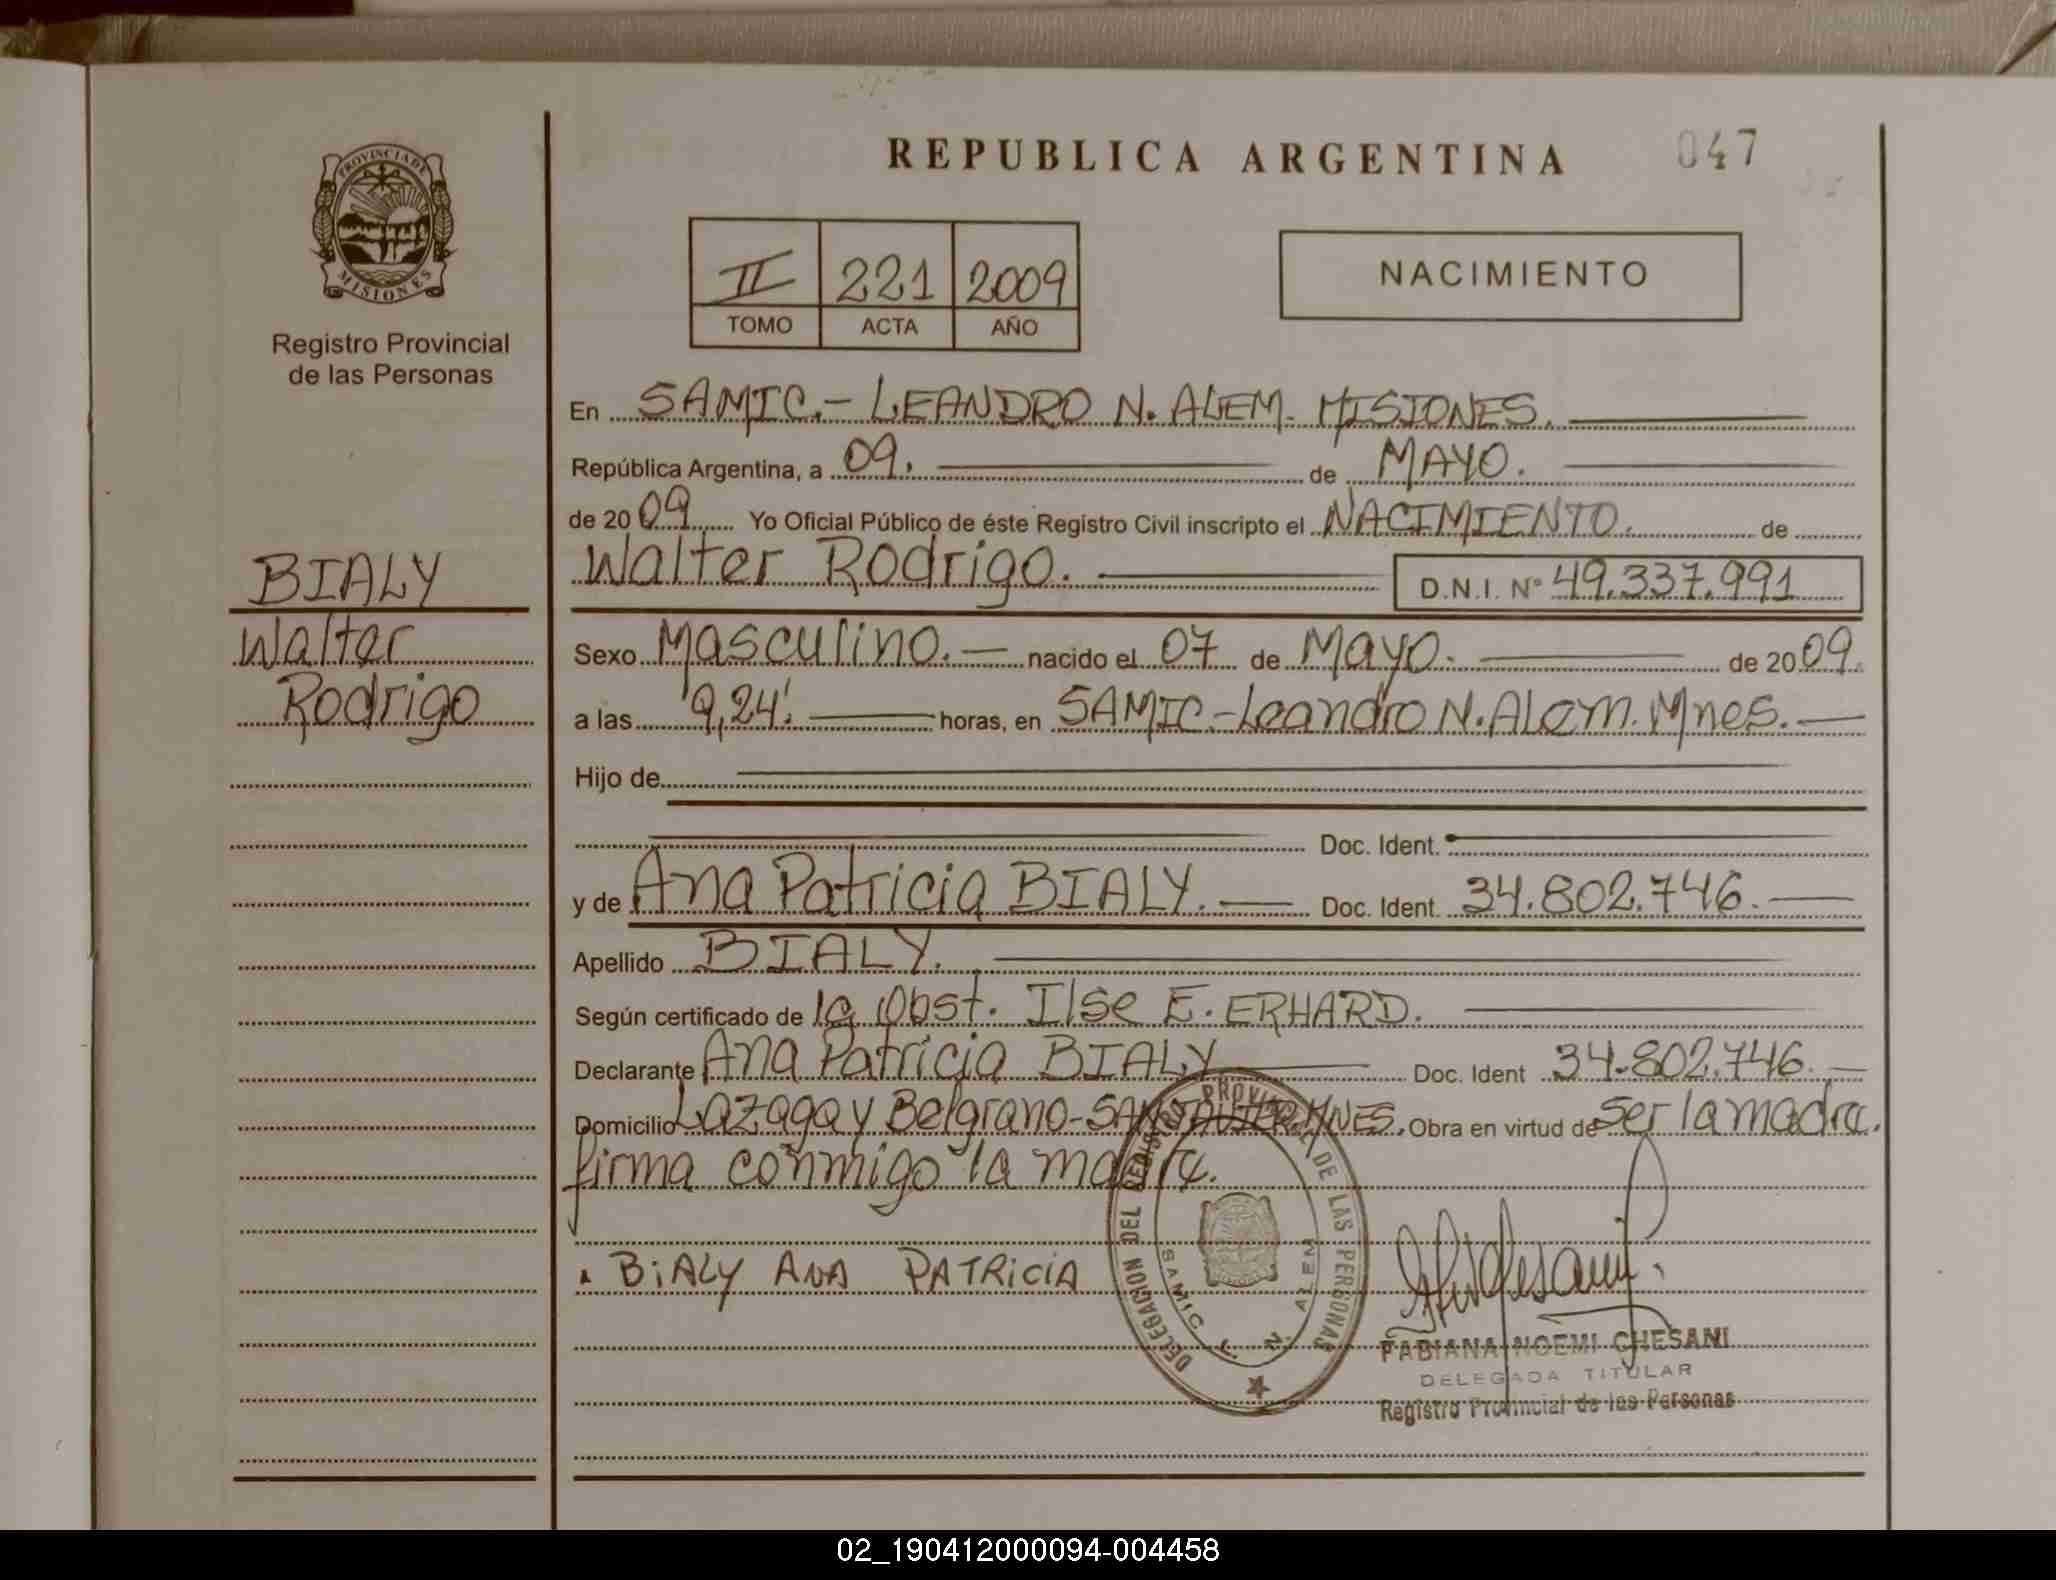 REPUBLICA ARGENTINA
047
PROVINCIA DE
MISIONES
Registro Provincial
de las Personas
II 221 2009
TOMO ACTA AÑO
NACIMIENTO
En SAMIC.- LEANDRO N. ALEM. MISIONES.
República Argentina, a 09. de MAYO.
de 20 09 Yo Oficial Público de éste Registro Civil inscripto el NACIMIENTO. de
Walter Rodrigo. D.N.I. Nº 49.337.991
BIALY
Walter
Rodrigo
Sexo Masculino. nacido el 07 de Mayo. de 20 09.
a las 9,24'. horas, en SAMIC-Leandro N. Alem. Mnes.
Hijo de
Doc. Ident.
y de Ana Patricia BIALY. Doc. Ident. 34.802.746.
Apellido BIALY.
Según certificado de la Obst. Ilse E. ERHARD.
Declarante Ana Patricia BIALY Doc. Ident 34.802.746.
Domicilio Lazaga y Belgrano-SAN JAVIER. MNES. Obra en virtud de ser la madre.
firma conmigo la madre.
BiALY ANA PATRiCiA
DELEGACION DEL REGISTRO PROVINCIAL DE LAS PERSONAS
SAMIC L. N. ALEM
FABIANA NOEMI CHESANI
DELEGADA TITULAR
Registro Provincial de las Personas
02_190412000094-004458